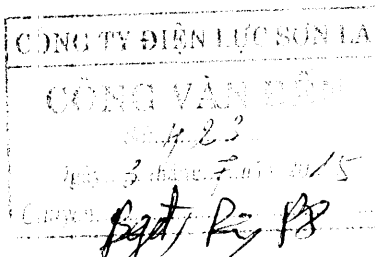 CÔNG TY ĐIỆN LỰC SƠN LA
CÔNG VĂN ĐẾN
423
Ngày 3 tháng 7 năm 2015
Chuyển